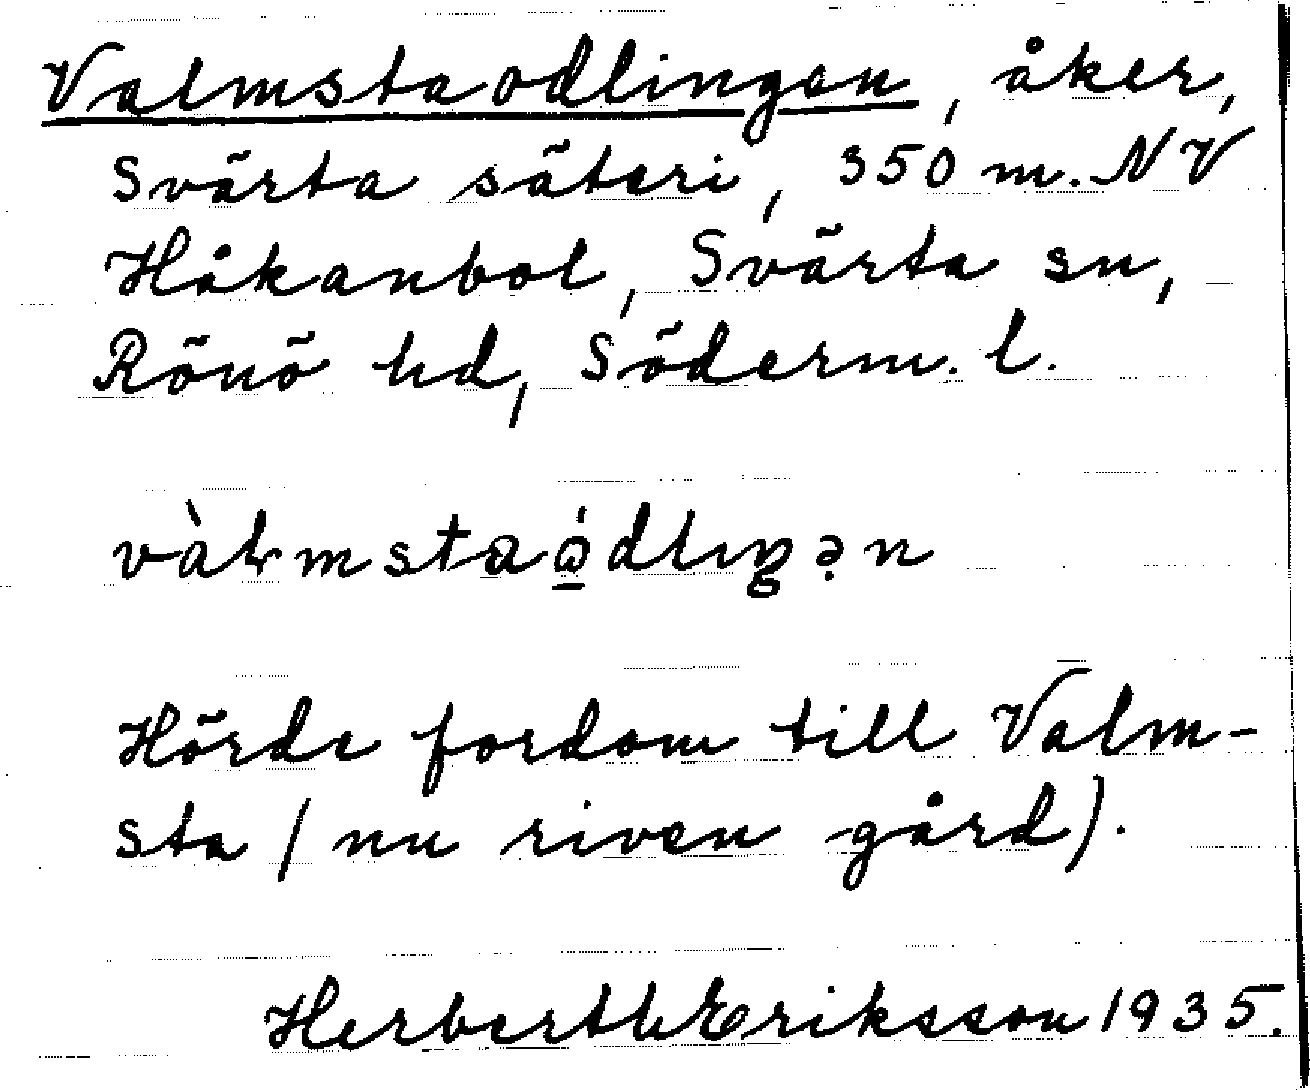 Valmstaodlingen, åker,
Svärta säteri, 350 m. NV
Håkanbol, Svärta sn,
Rönö hd, Söderm. l.
vàɫmstaꞷ́dlıŋən
Hörde fordom till Valm-
sta (nu riven gård).
Herberth Eriksson 1935.